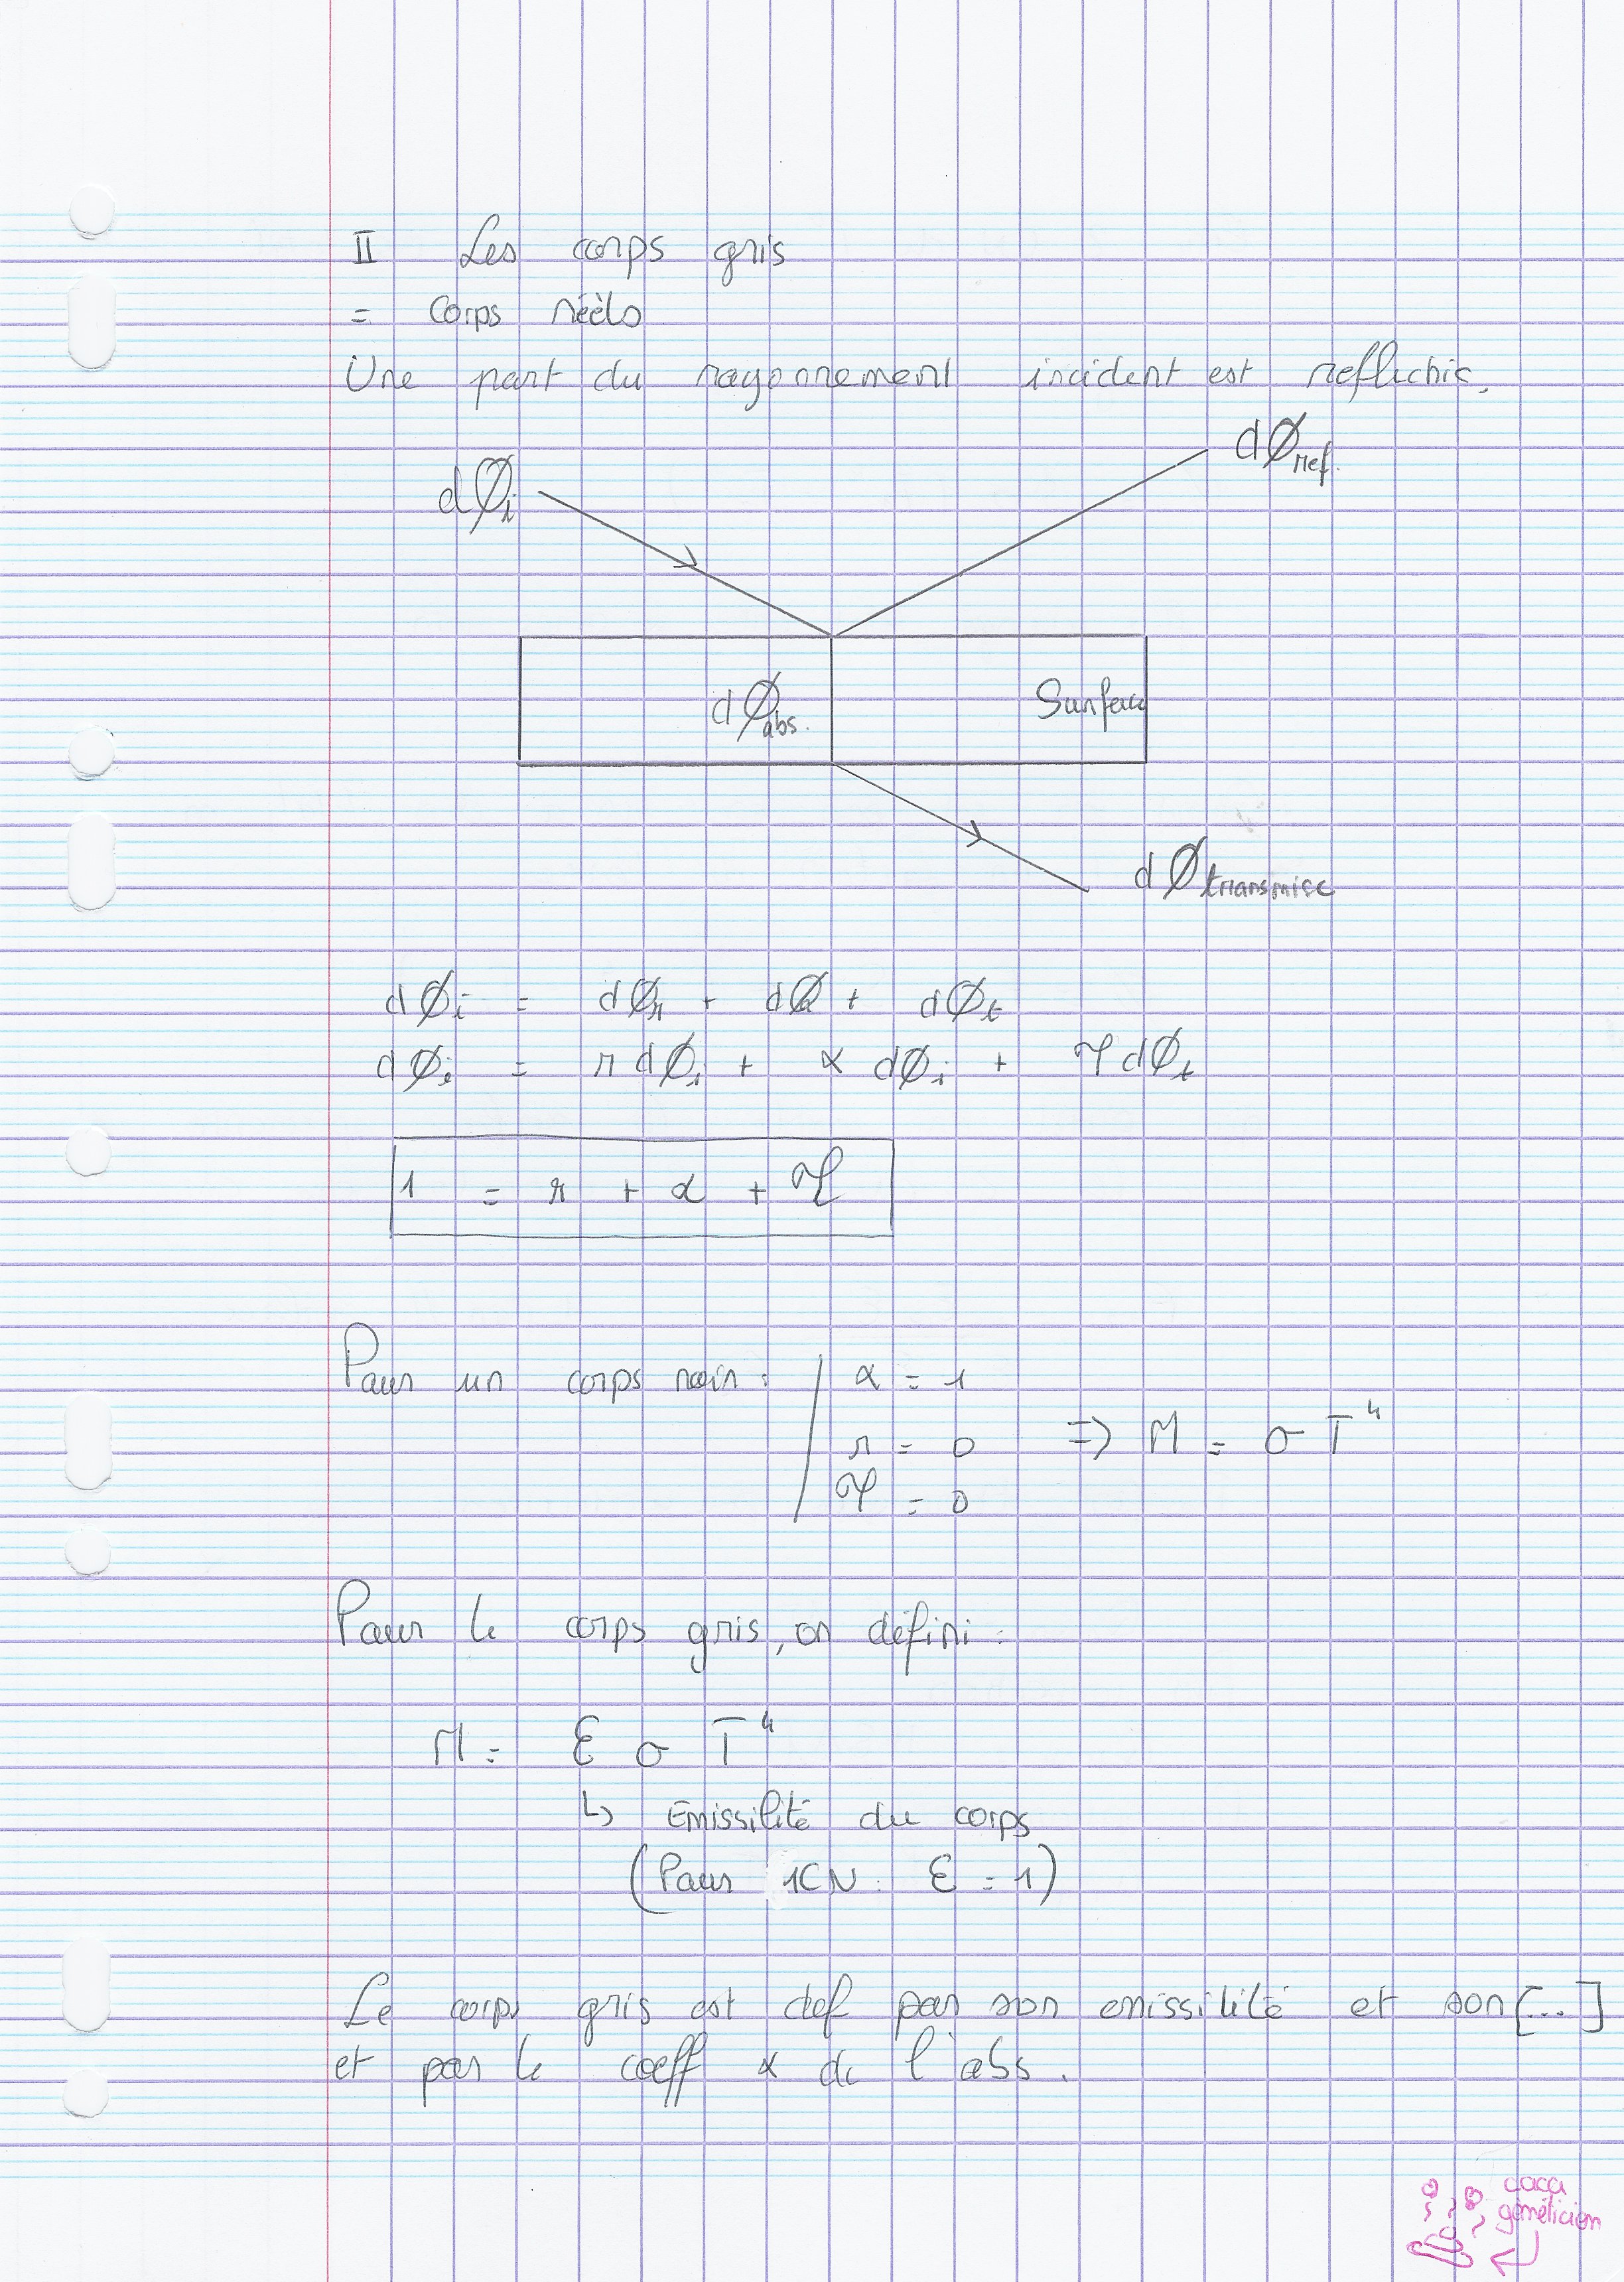 II Les corps gris
= Corps réèls
Une part du rayonnement incident est reflechie.
dØi
dØref.
dØabs.
Surface
dØtransmise
dØi = dØr + dØa + dØt
dØi = r dØi + α dØi + τ dØt
1 = r + α + τ
Pour un corps noir : α = 1
r = 0 => M = σ T⁴
τ = 0
Pour le corps gris, on défini :
M = ε σ T⁴
↳ Emissilité du corps
(Pour 1CN : ε = 1)
Le corps gris est def par son emissilité et son [...]
et par le coeff α de l'abs.
caca
génélicien